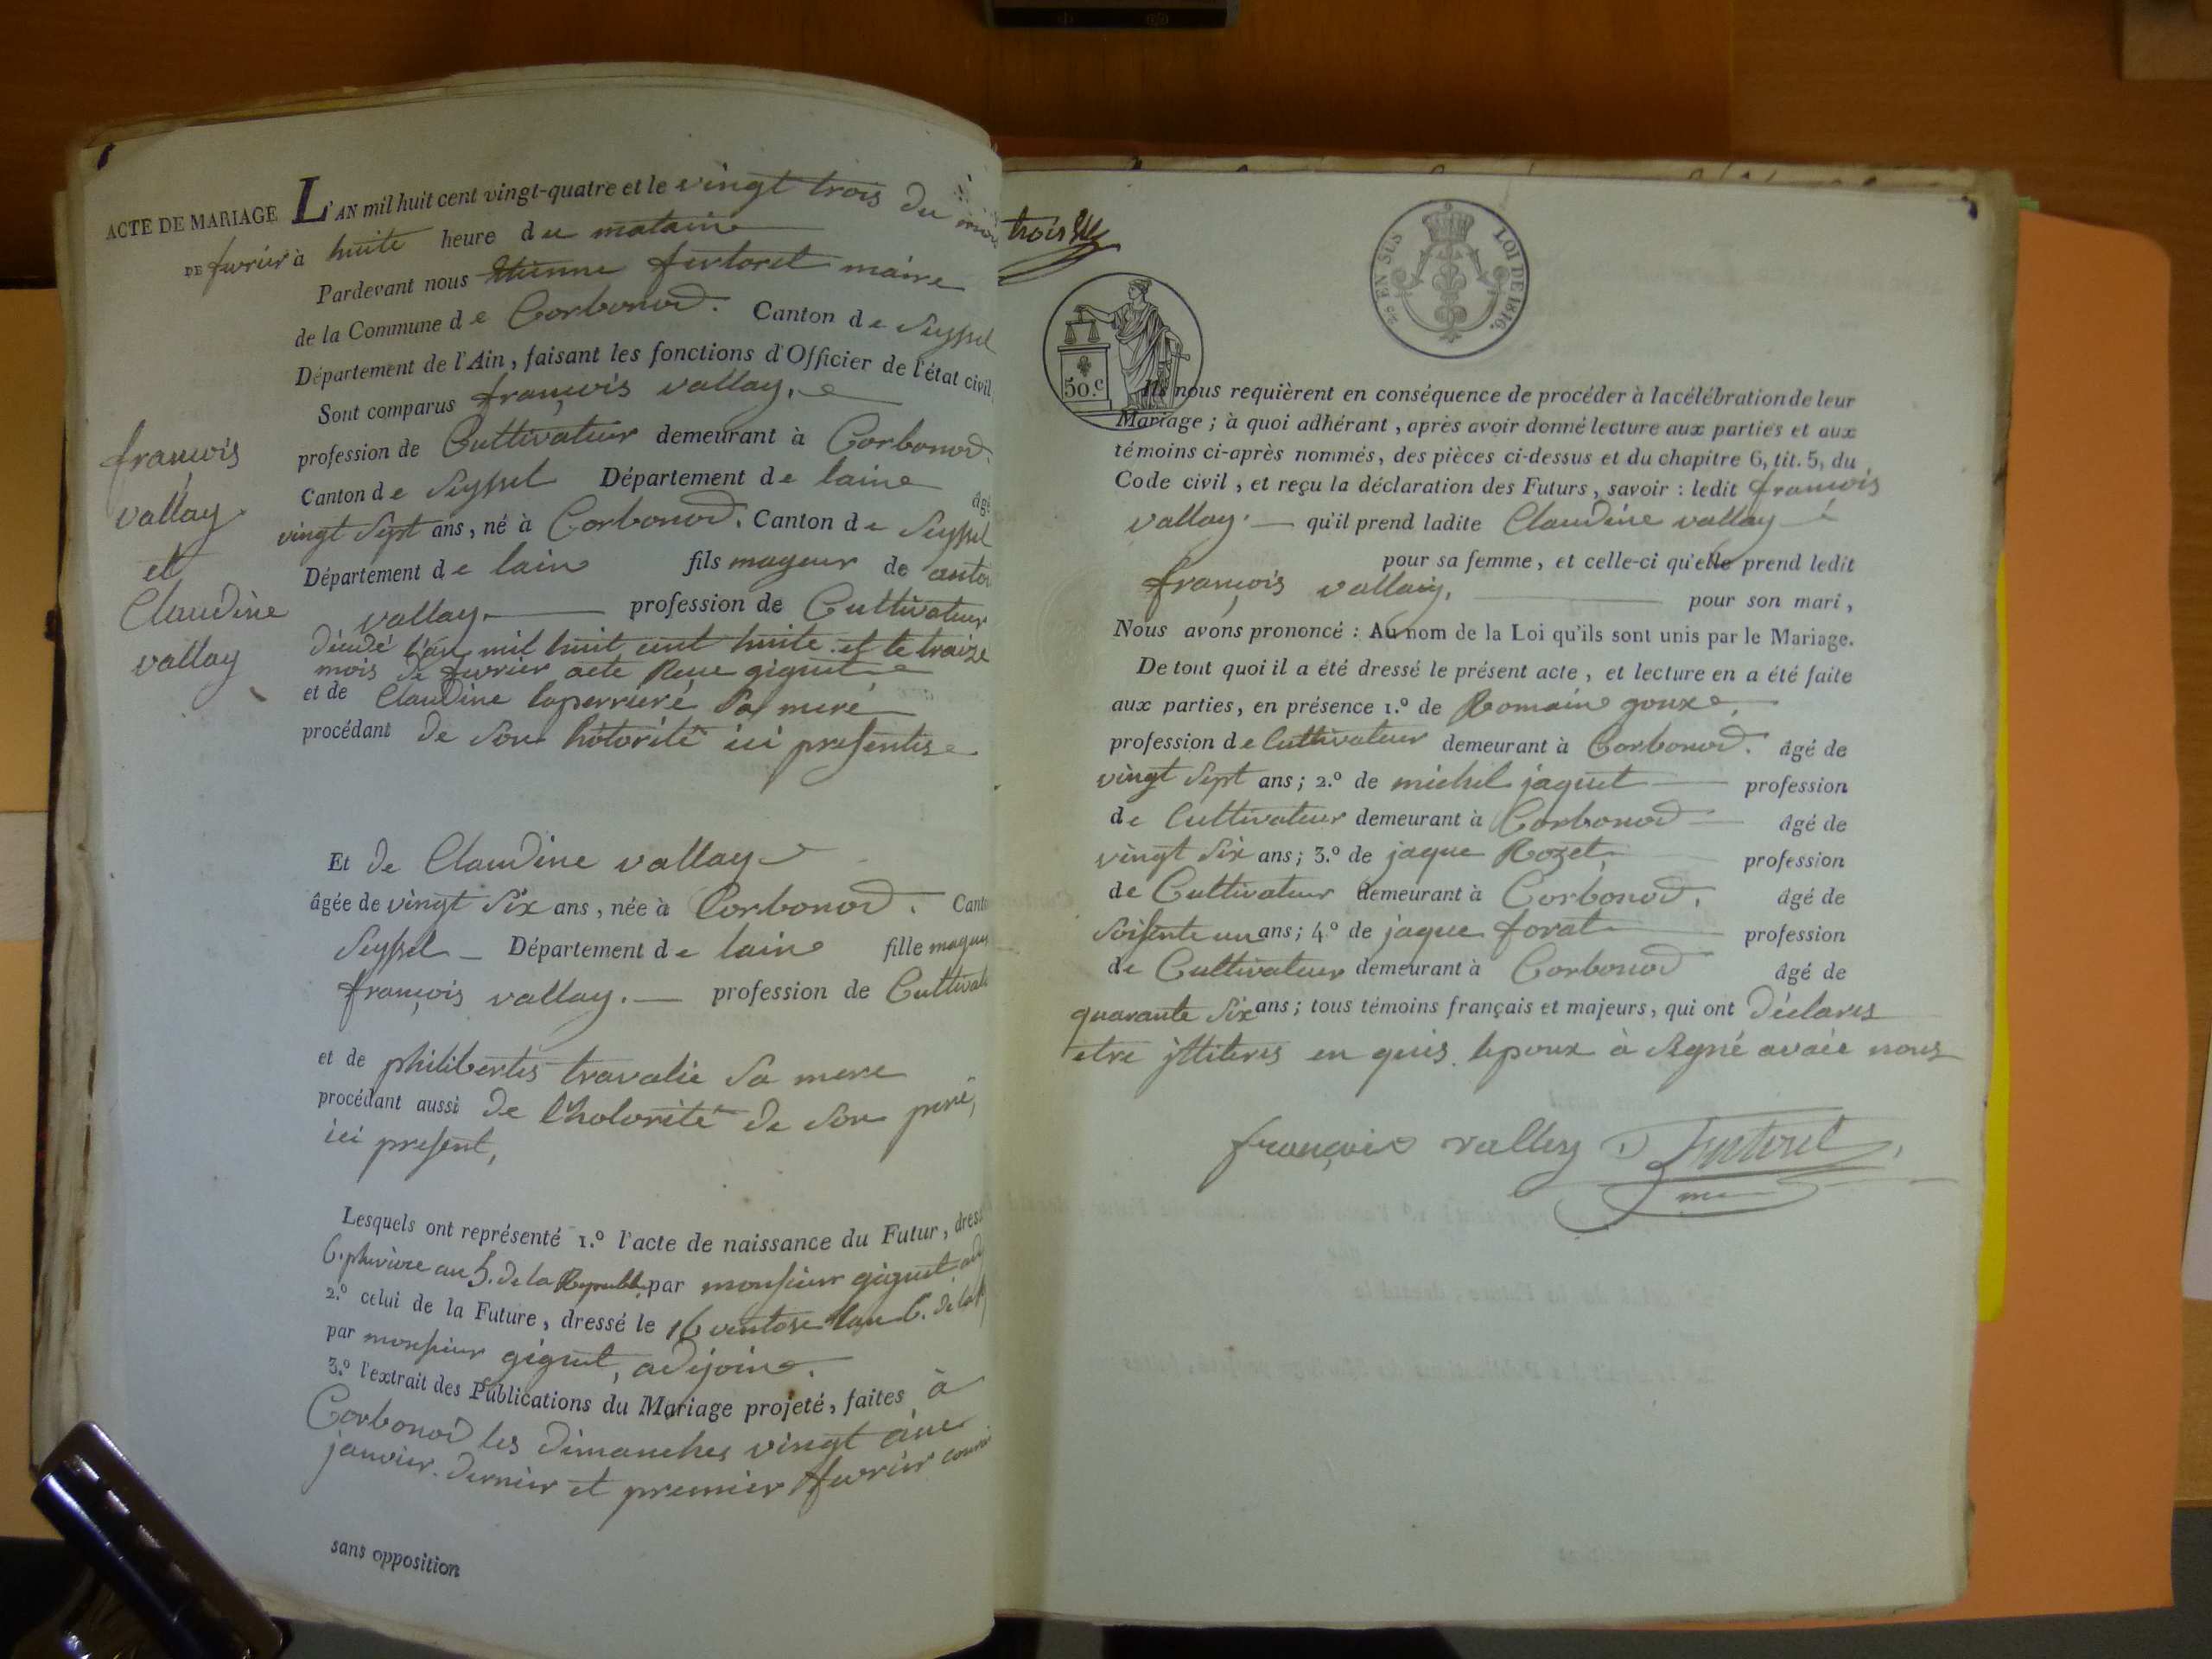 ACTE DE MARIAGE L'AN mil huit cent vingt-quatre et le vingt trois du mois
DE fevrier à huite heure du mataine
Pardevant nous Etienne fertoret maire
de la Commune de Corbonod. Canton de Seyssel
Département de l'Ain, faisant les fonctions d'Officier de l'état civil
Sont comparus françois vallay,
profession de Cultivateur demeurant à Corbonod.
Canton de Seyssel Département de laine âgé
vingt sept ans, né à Corbonod. Canton de Seyssel
Département de lain fils mageur de
vallay. profession de Cultivateur
mil huit cent huite et le traize
mois de fevrier acte Reçue giguet
et de Claudine laperriere sa mere
procédant de son hotorité ici presentes
françois
vallay
et
Claudine
vallay
Et de Claudine vallay
âgée de vingt six ans, née à Corbonod. Cant
Seyssel Département de laine fille
françois vallay. profession de
et de philibertes travalie sa mere
procédant aussi de l'hotorité de son pere,
ici present,
Lesquels ont représenté 1.º l'acte de naissance du Futur,
6. an 5. de la par monsieur giguet
2.º celui de la Future, dressé le 16 ventose lan 6. de la
par monsieur giguet, adijoine.
3.º l'extrait des Publications du Mariage projeté, faites à
Corbonod les dimanches vingt
janvier. dernier et premier fevrier
sans opposition
trois
EN SUS LOI DE 1816.
50.c
Ils nous requièrent en conséquence de procéder à la célébration de leur
Mariage; à quoi adhérant, après avoir donné lecture aux parties et aux
témoins ci-après nommés, des pièces ci-dessus et du chapitre 6, tit. 5, du
Code civil, et reçu la déclaration des Futurs, savoir: ledit françois
vallay. qu'il prend ladite Claudine vallay
pour sa femme, et celle-ci qu'elle prend ledit
françois vallay, pour son mari,
Nous avons prononcé: Au nom de la Loi qu'ils sont unis par le Mariage.
De tout quoi il a été dressé le présent acte, et lecture en a été faite
aux parties, en présence 1.º de Romain goux
profession de Cultivateur demeurant à Corbonod. âgé de
vingt sept ans; 2.º de michel jaquet profession
de Cultivateur demeurant à Corbonod âgé de
vingt six ans; 3.º de jaque Rozet, profession
de Cultivateur demeurant à Corbonod, âgé de
soisente un ans; 4.º de jaque forat profession
de Cultivateur demeurant à Corbonod âgé de
quarante six ans; tous témoins français et majeurs, qui ont déclares
etre jlliteres en quis lepoux à signé avaie nous
françois vallay fertoret